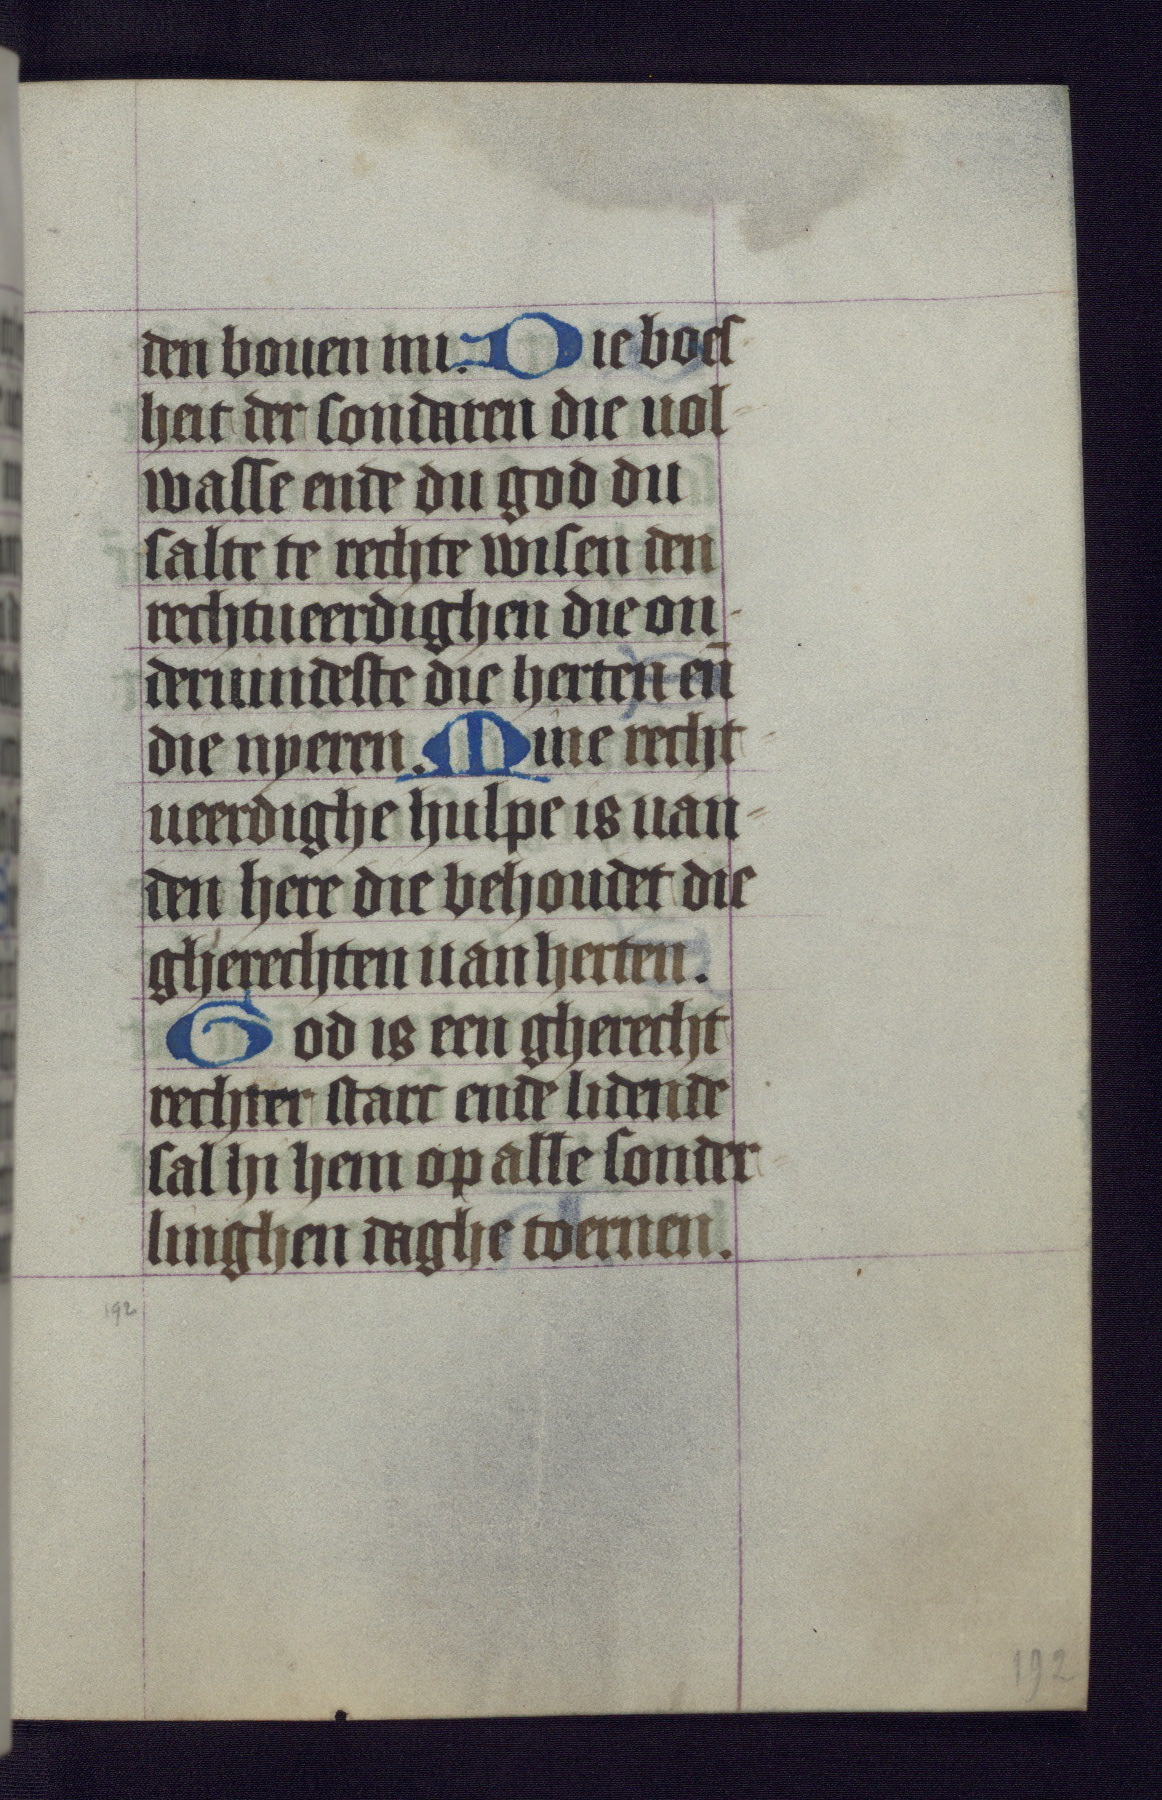 den bouen mi. Die boes
heit der sondaren die uol-
wasse ende du god du
salte te rechte wisen den
rechtueerdighen die on-
deruindeste die herten en̄
die nyeren. Mine recht-
ueerdighe hulpe is uan-
den here die behoudet die
gherechten uan herten.
God is een gherecht
rechter starc ende lidende
sal hi hem op alle sonder-
linghen daghe toernen.
192
192